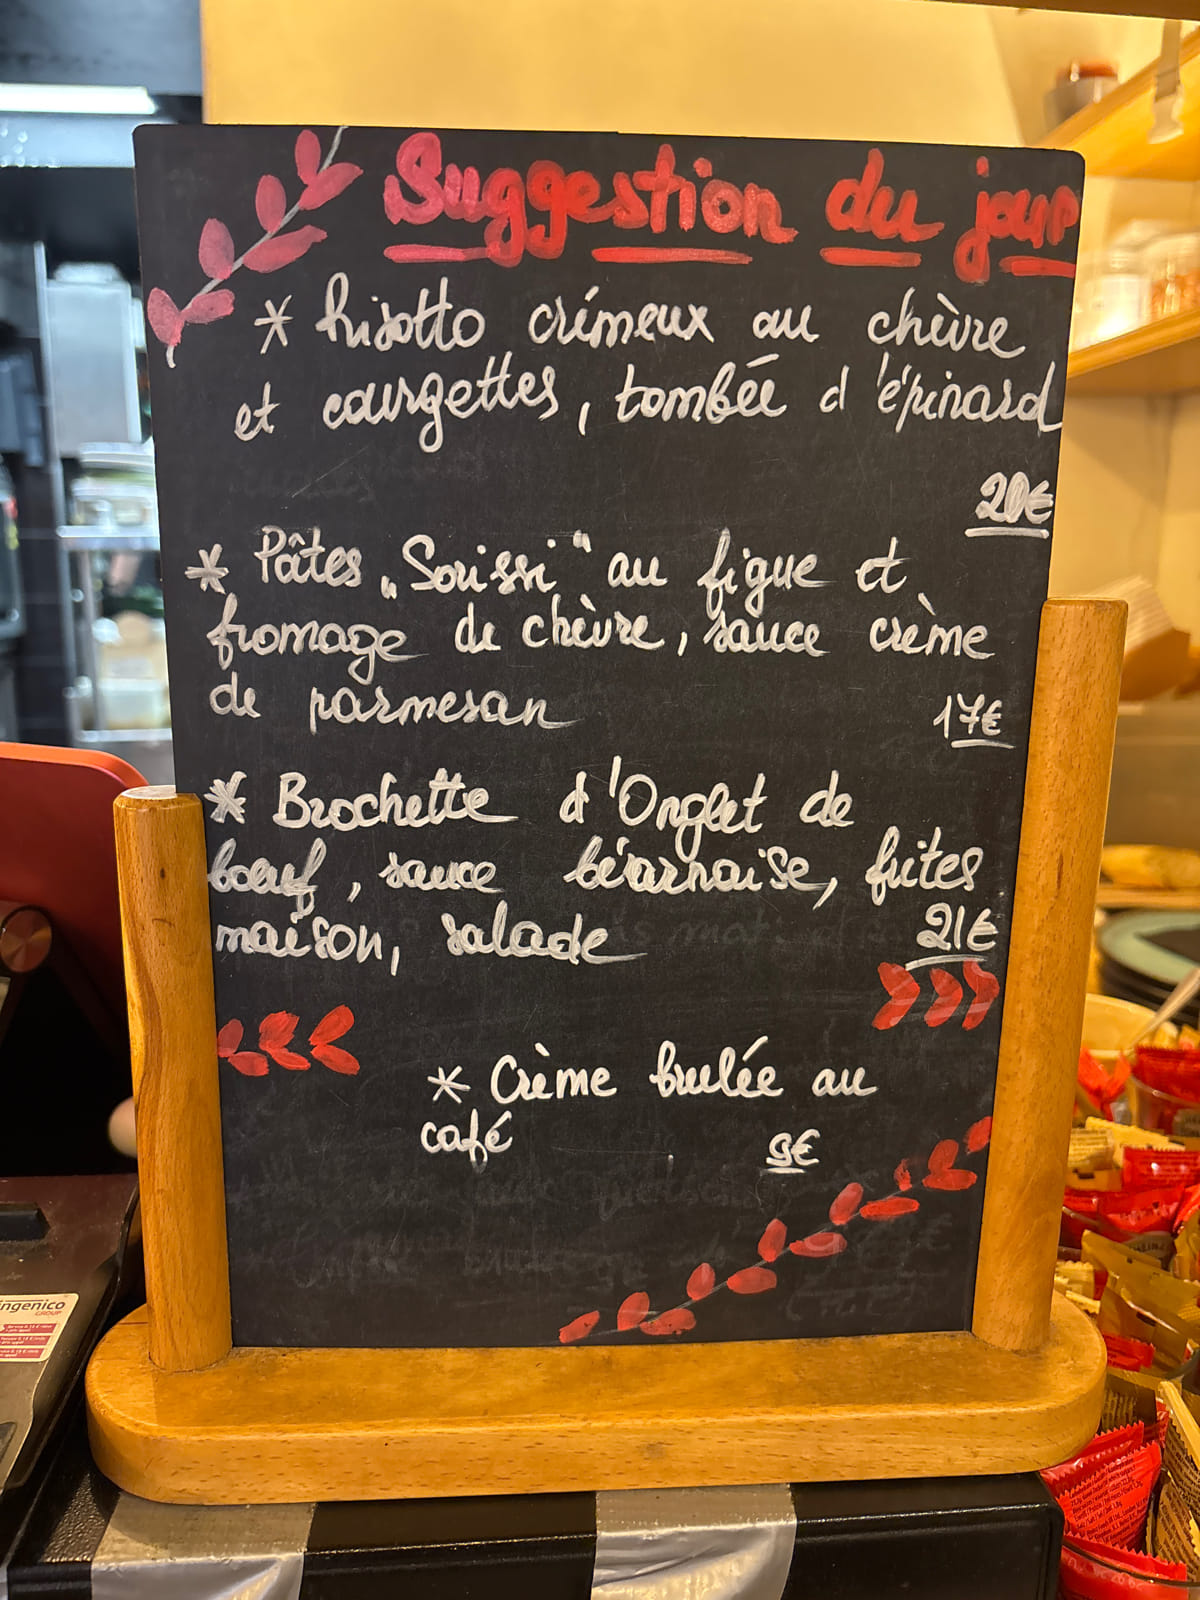 Suggestion du jour
* Risotto crémeux au chèvre
et courgettes, tombée d'épinard
20€
* Pâtes „Sorissi" au figue et
fromage de chèvre, sauce crème
de parmesan 17€
* Brochette d'Onglet de
boeuf, sauce béarnaise, frites
maison, salade 21€
* Crème brulée au
café 9€
ingenico
GROUP